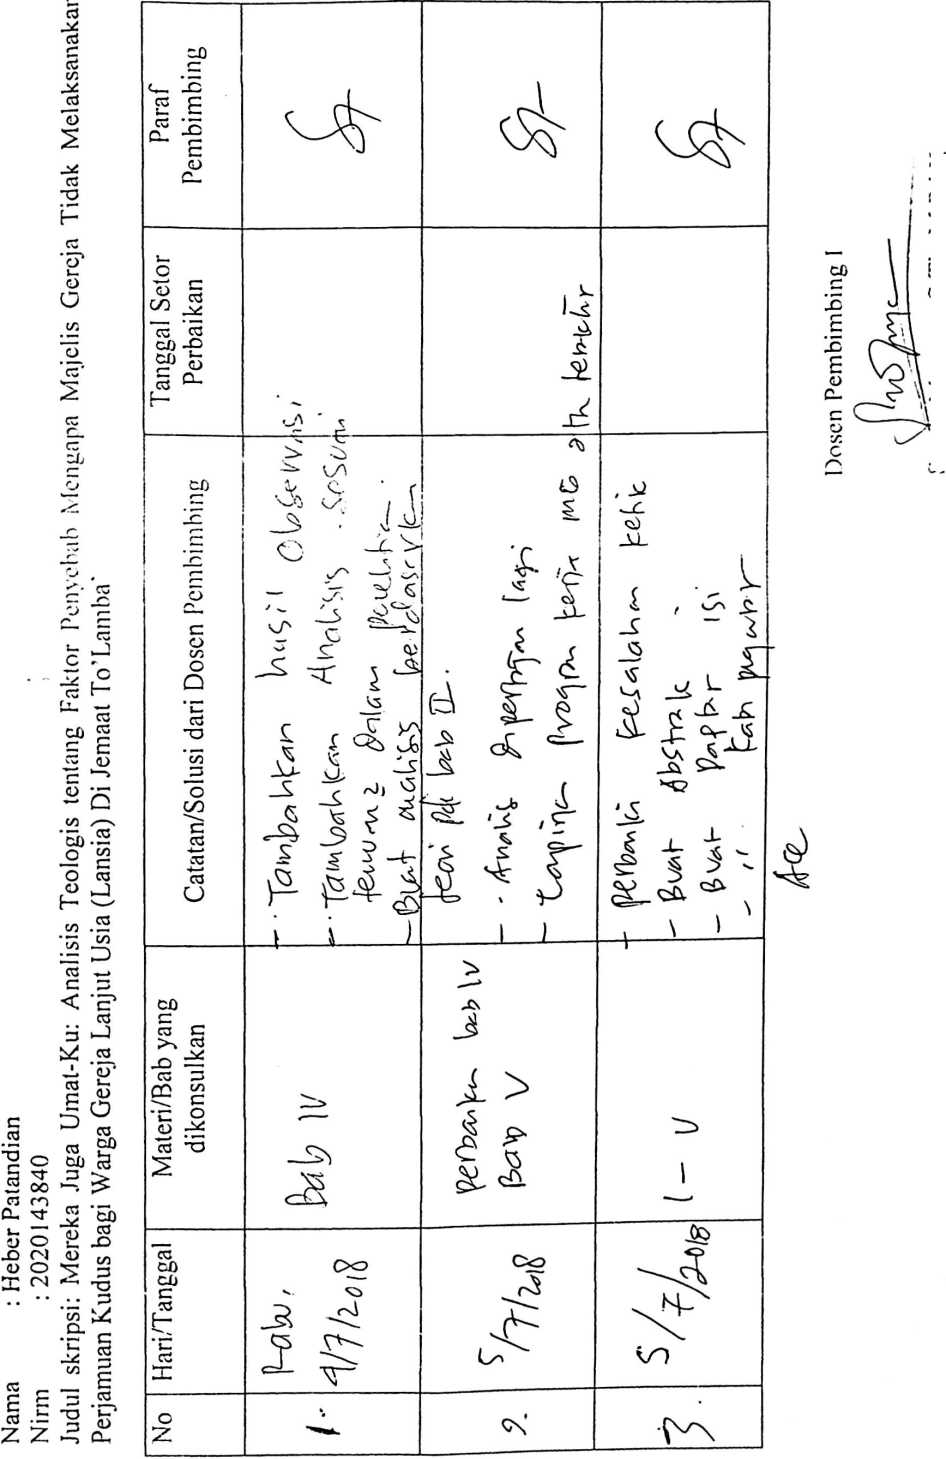 Nama : Heber Patandian
Nirm : 2020143840
Judul skripsi: Mereka Juga Umat-Ku: Analisis Teologis tentang Faktor Penyebab Mengapa Majelis Gereja Tidak Melaksanakan
Perjamuan Kudus bagi Warga Gereja Lanjut Usia (Lansia) Di Jemaat To'Lamba`
No
Hari/Tanggal
Materi/Bab yang
dikonsulkan
Catatan/Solusi dari Dosen Pembimbing
Tanggal Setor
Perbaikan
Paraf
Pembimbing
1.
Rabu,
4/7/2018
Bab IV
- Tambahkan hasil Observasi
- Tambahkan Analisis sesuai
dalam
- Buat analisis
teori bab II.
2.
5/7/2018
perbaikan bab IV
Bab V
- Analisis dipertajam lagi
- program kerja
3.
5/7/2018
I - V
- perbaiki kesalahan ketik
- Buat Abstrak
- Buat Daptar isi
- ,, kata
Acc
Dosen Pembimbing I